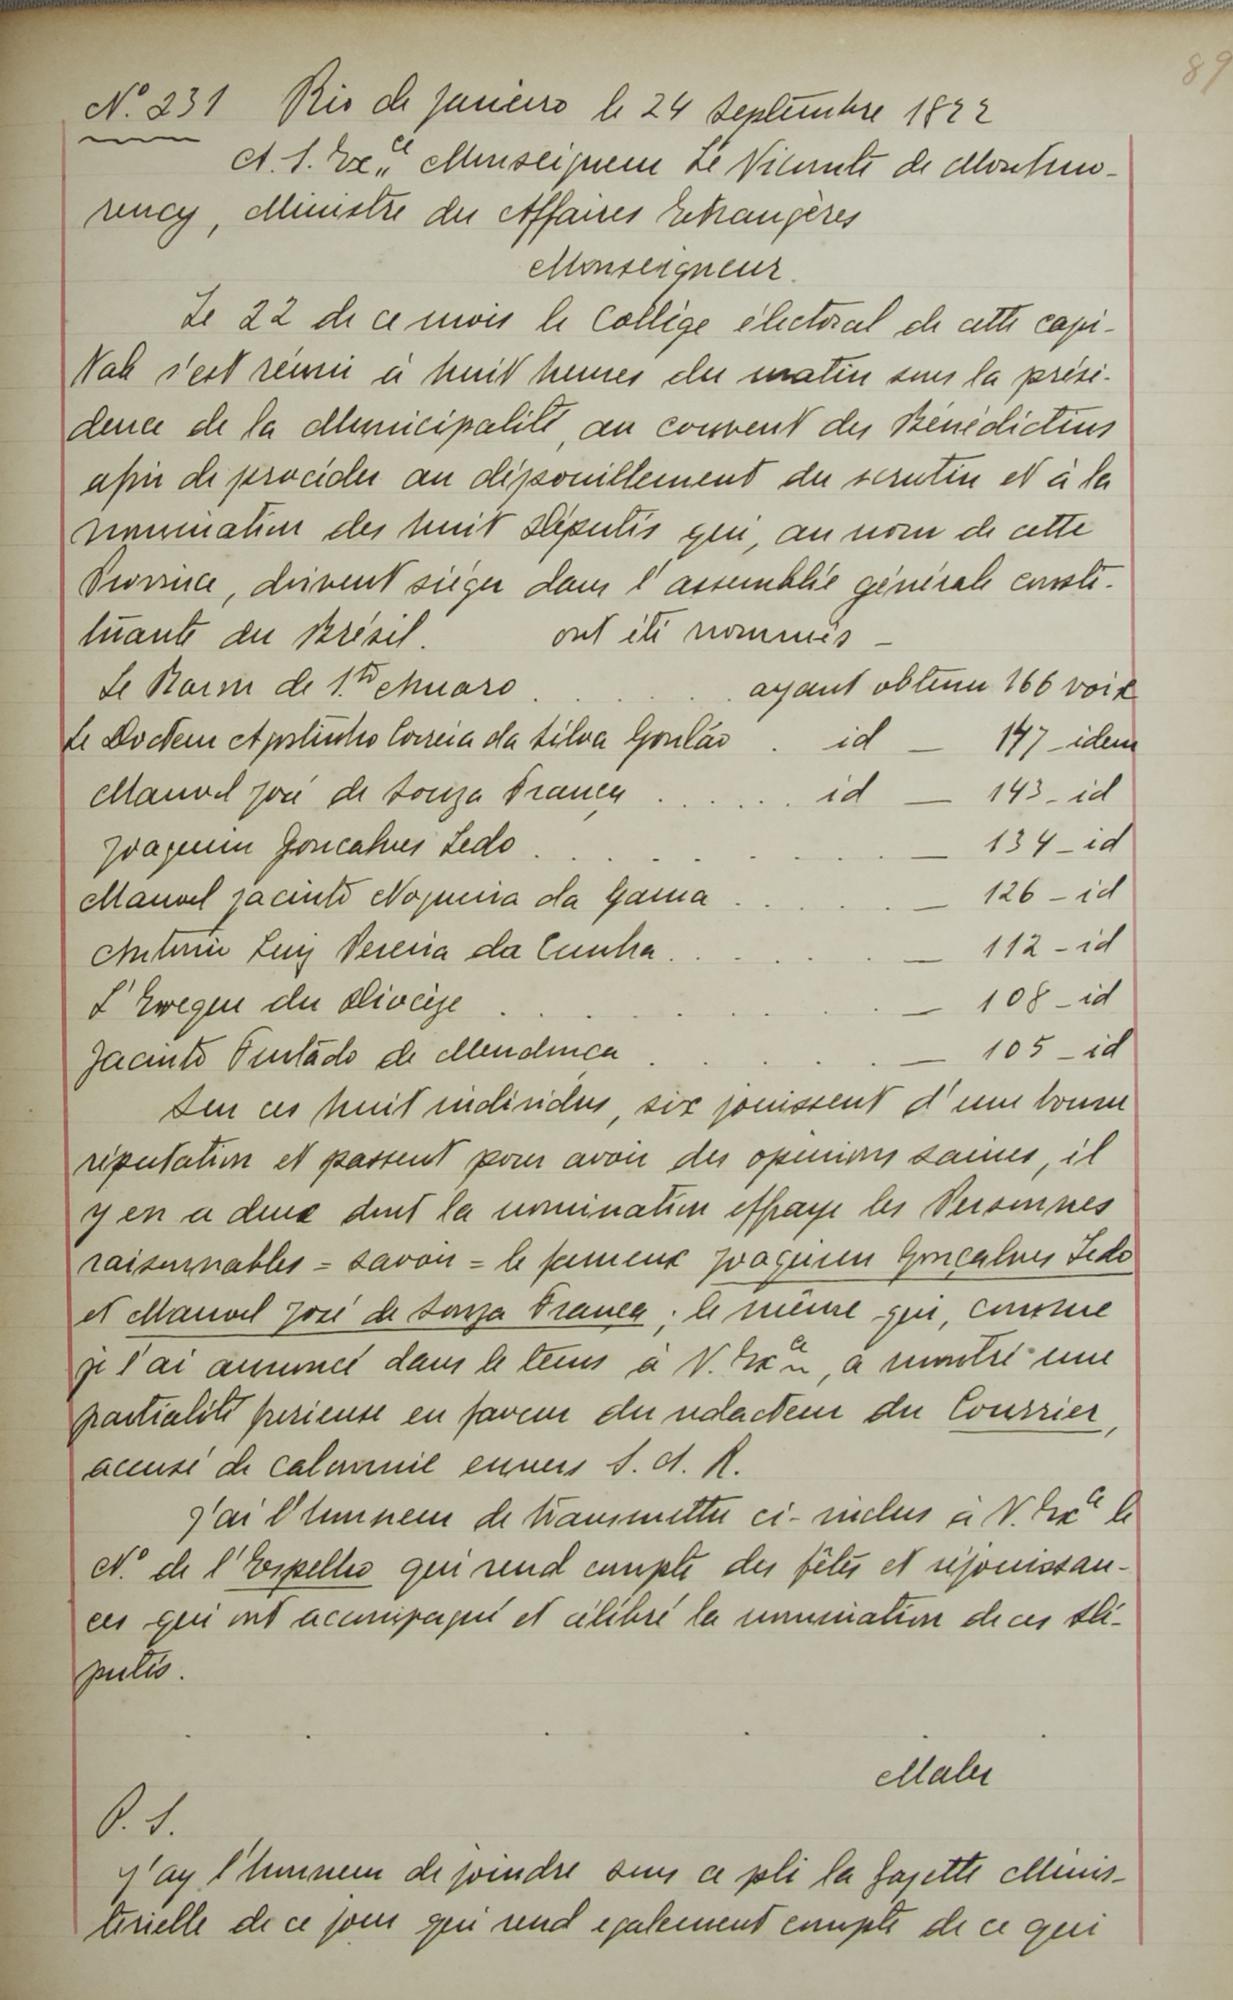 89
N.º 231 Rio de Janeiro le 24 Septembre 1822
A. S. Ex.ce Monseigneur Le Vicomte de Montmo-
rency, Ministre des Affaires Etrangères
Monseigneur.
Le 22 de ce mois le Collége électoral de cette capi-
tale s'est réuni à huit heures du matin sous la prési-
dence de la Municipalité, au couvent des Bénédictins
afin de procéder au dépouillement du scrutin et à la
nomination des huit Députés qui, au nom de cette
Province, doivent siéger dans l'assemblée générale consti-
tuante du Brésil. ont été nommés –
Le Baron de S.to Amaro . . . . ayant obtenu 166 voix
Le Docteur Agostinho Correia da Silva Goulão . id – 147 – idem
Manoel José de Souza França . . . . . . id – 143 – id
Joaquim Goncalves Ledo . . . . . . . . – 134 – id
Manoel Jacinto Nogueira da Gama . . . . . – 126 – id
Antonio Luiz Pereira da Cunha . . . . . . – 112 – id
L'Eveque du Diocèze . . . . . . . . – 108 – id
Jacinto Furtado de Mendonça . . . . . – 105 – id
Sur ces huit individus, six jouissent d'une bonne
réputation et passent pour avoir des opinions saines, il
y en a deux dont la nomination effraye les Personnes
raisonnables = savoir = le fameux Joaquim Gonçalves Ledo
et Manoel José de Souza França, le même qui, comme
je l'ai annoncé dans le tems à V. Exce, a montré une
partialité furieuse en faveur du redacteur du Courrier,
accusé de calomnie envers S. A. R.
J'ai l'honneur de transmettre ci-inclus à V. Exce le
N.º de l'Espelho qui rend compte des fêtes et réjouissan-
ces qui ont acompagné et célébré la nomination de ces Dé-
putés.
Maler
P. S.
J'ay l'honneur de joindre sous ce pli la Gazette Minis-
térielle de ce jour qui rend egalement compte de ce qui